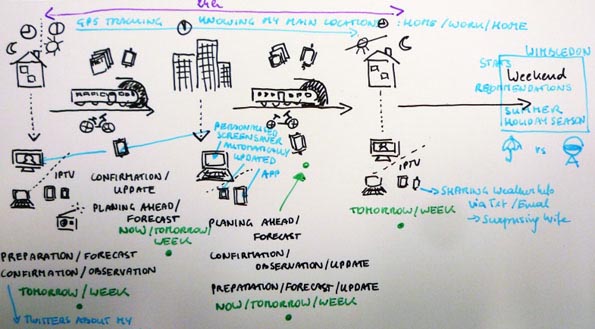 24h
GPS TRACKING
KNOWING MY MAIN LOCATIONS : HOME/WORK/HOME
WIMBLEDON
STATS
Weekend
RECOMENDATIONS
SUMMER
HOLIDAY SEASON
VS
PERSONALISED
SCREENSAVER
AUTOMATICALLY
UPDATED
APP
IPTV
CONFIRMATION/
UPDATE
PLANING AHEAD/
FORECAST
NOW/TOMORROW/
WEEK
PREPARATION/FORECAST
CONFIRMATION/OBSERVATION
TOMORROW/WEEK
TWITTERS ABOUT MY
PLANING AHEAD/
FORECAST
CONFIRMATION/
OBSERVATION/UPDATE
PREPARATION/FORECAST/UPDATE
NOW/TOMORROW/WEEK
IPTV
SHARING Weather info
via Txt/Email
→ Surprising Wife
TOMORROW/WEEK